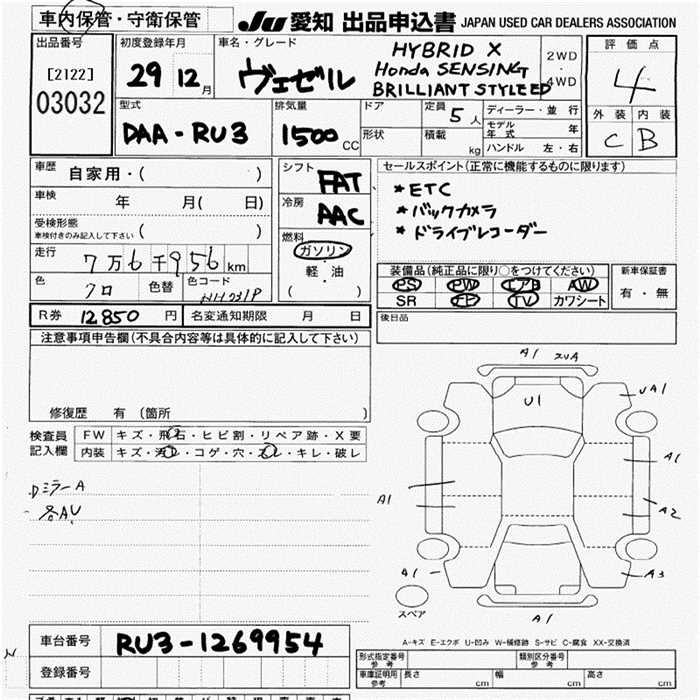 車内保管・守衛保管
JU 愛知 出品申込書 JAPAN USED CAR DEALERS ASSOCIATION
出品番号
[2122]
03032
初度登録年月
29 12月
車名・グレード
ヴェゼル
HYBRID X
Honda SENSING
BRILLIANT STYLEED
2WD
・
4WD
評価点
4
外装 内装
C B
型式
DAA-RU3
排気量
1500 CC
ドア
形状
定員 5 人
積載 kg
ディーラー・並 行
モデル年式 年
ハンドル 左・右
車歴 自家用・( )
車検 年 月( 日)
受検形態
車検付きのみ記入して下さい ( )
走行
7万6千956km
色 クロ 色替 色コード NH731P
シフト FAT
冷房 AAC
燃料
ガソリン
・
軽・油
( )
セールスポイント(正常に機能するものに限ります)
*ETC
*バックカメラ
*ドライブレコーダー
装備品(純正品に限り○をつけてください)
PS PW エアB AW
SR EP TV カワシート
新車保証書
有・無
R券 12850 円 名変通知期限 月 日
後日品
注意事項申告欄(不具合内容等は具体的に記入して下さい)
修復歴 有 (箇所 )
検査員
記入欄
FW キズ・飛石・ヒビ割・リペア跡・X要
内装 キズ・汚れ・コゲ・穴・スレ・キレ・破レ
Dミラー A
各AU
A1
U1
UA1
A1
A1
A2
A1
A3
A1
スペア
A-キズ E-エクボ U-凹み W-補修跡 S-サビ C-腐食 XX-交換済
車台番号 RU3-1269954
登録番号
形式指定番号
参考
類別区分番号
参考
車庫証明用
参考
長さ cm 幅 cm 高さ cm